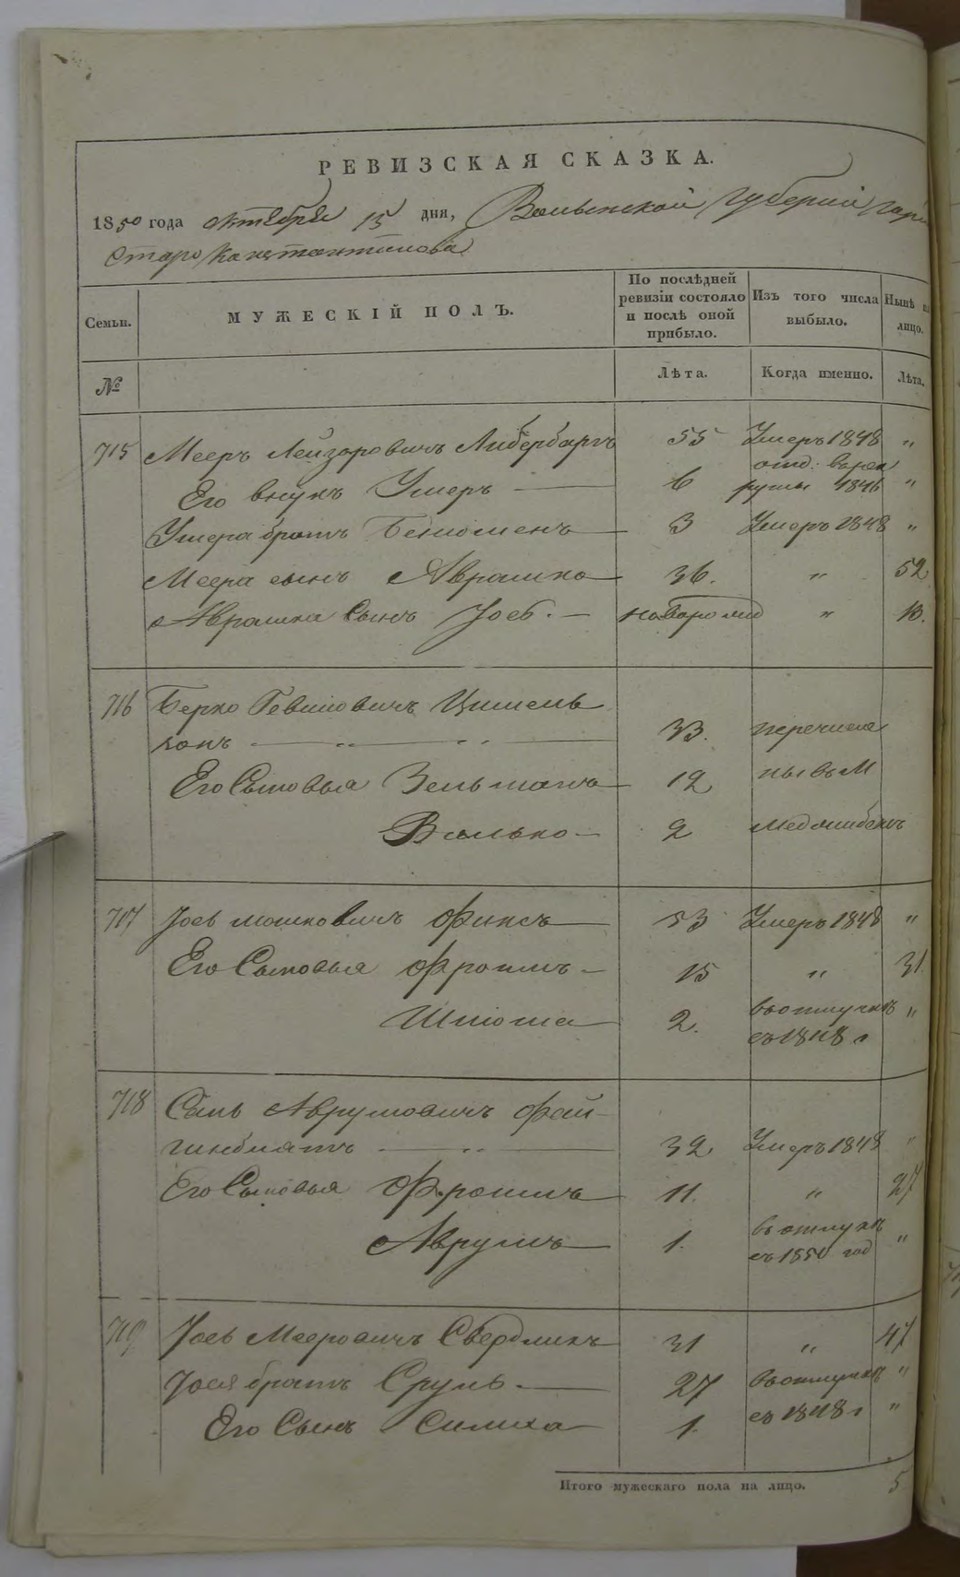 РЕВИЗСКАЯ СКАЗКА.
1850 года октября 15 дня, Волынской Губернии
Старо Константинова
Семьи. МУЖЕСКІЙ ПОЛЪ. По послѣдней ревизіи состояло и послѣ оной прибыло. Изъ того числа выбыло. Нынѣ на лицо.
№ Лѣта. Когда именно. Лѣта.
715 Мееръ Лейзаровичъ Либербармъ 55 Умеръ 1848 "
Его внукъ Умеръ 6 отд: въ рек руты 1846 "
Умера братъ Бениоменъ 3 Умеръ 1848 "
Меера сынъ Аврашко 36. " 52
Аврашка Сынъ Іось. новорожд " 10.
716 Берко Гевшовичъ Цимель
33. перечисле
Его Сыновья Зельманъ 12 ны въ М
Волько 2 Меджибежъ
717 Іось мошковичъ Фуксъ 53 Умеръ 1848 "
Его Сыновья Фроимъ 15 " 31
Шліома 2. въ отлучкѣ съ 1848 г "
718 Сань Аврумовичъ Фай-
гинблатъ " 32 Умеръ 1848 "
Его Сыновья Фроимъ 11. " 27
Аврумъ 1. въ отлучкѣ съ 1850 год "
719 Іось Мееровичъ Свердликъ 31 " 47
Іося братъ Сруль 27 въ отлучкѣ "
Его Сынъ 1. съ 1848 г "
Итого мужескаго пола на лицо. 5